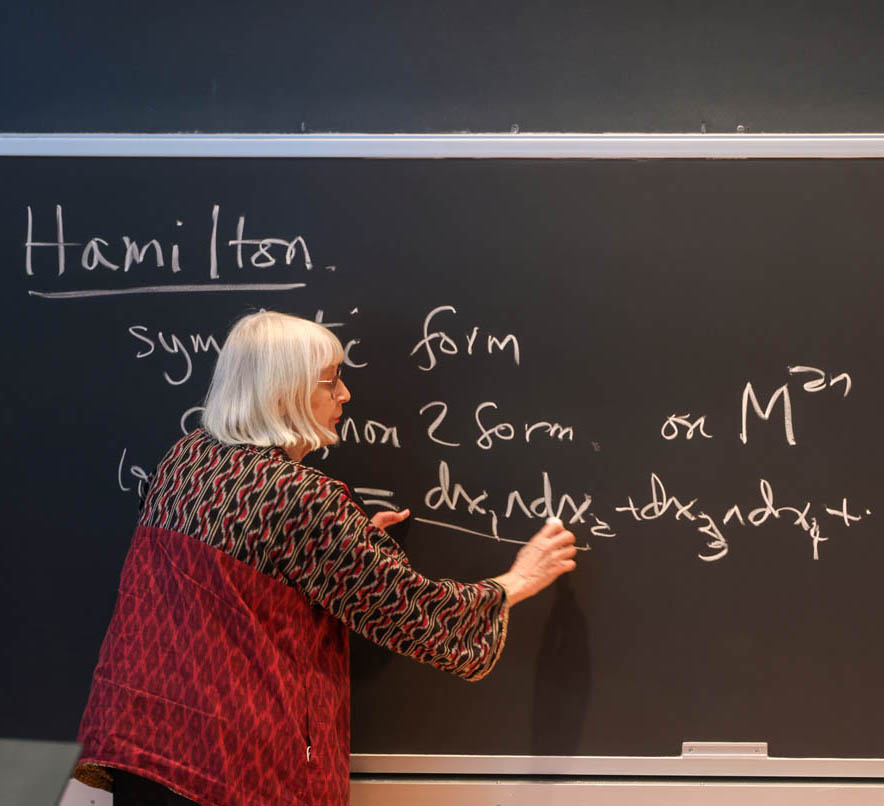 Hamilton.
form
2 form on M²ⁿ
= dx₁∧dx₂ + dx₃∧dx₄ + ..